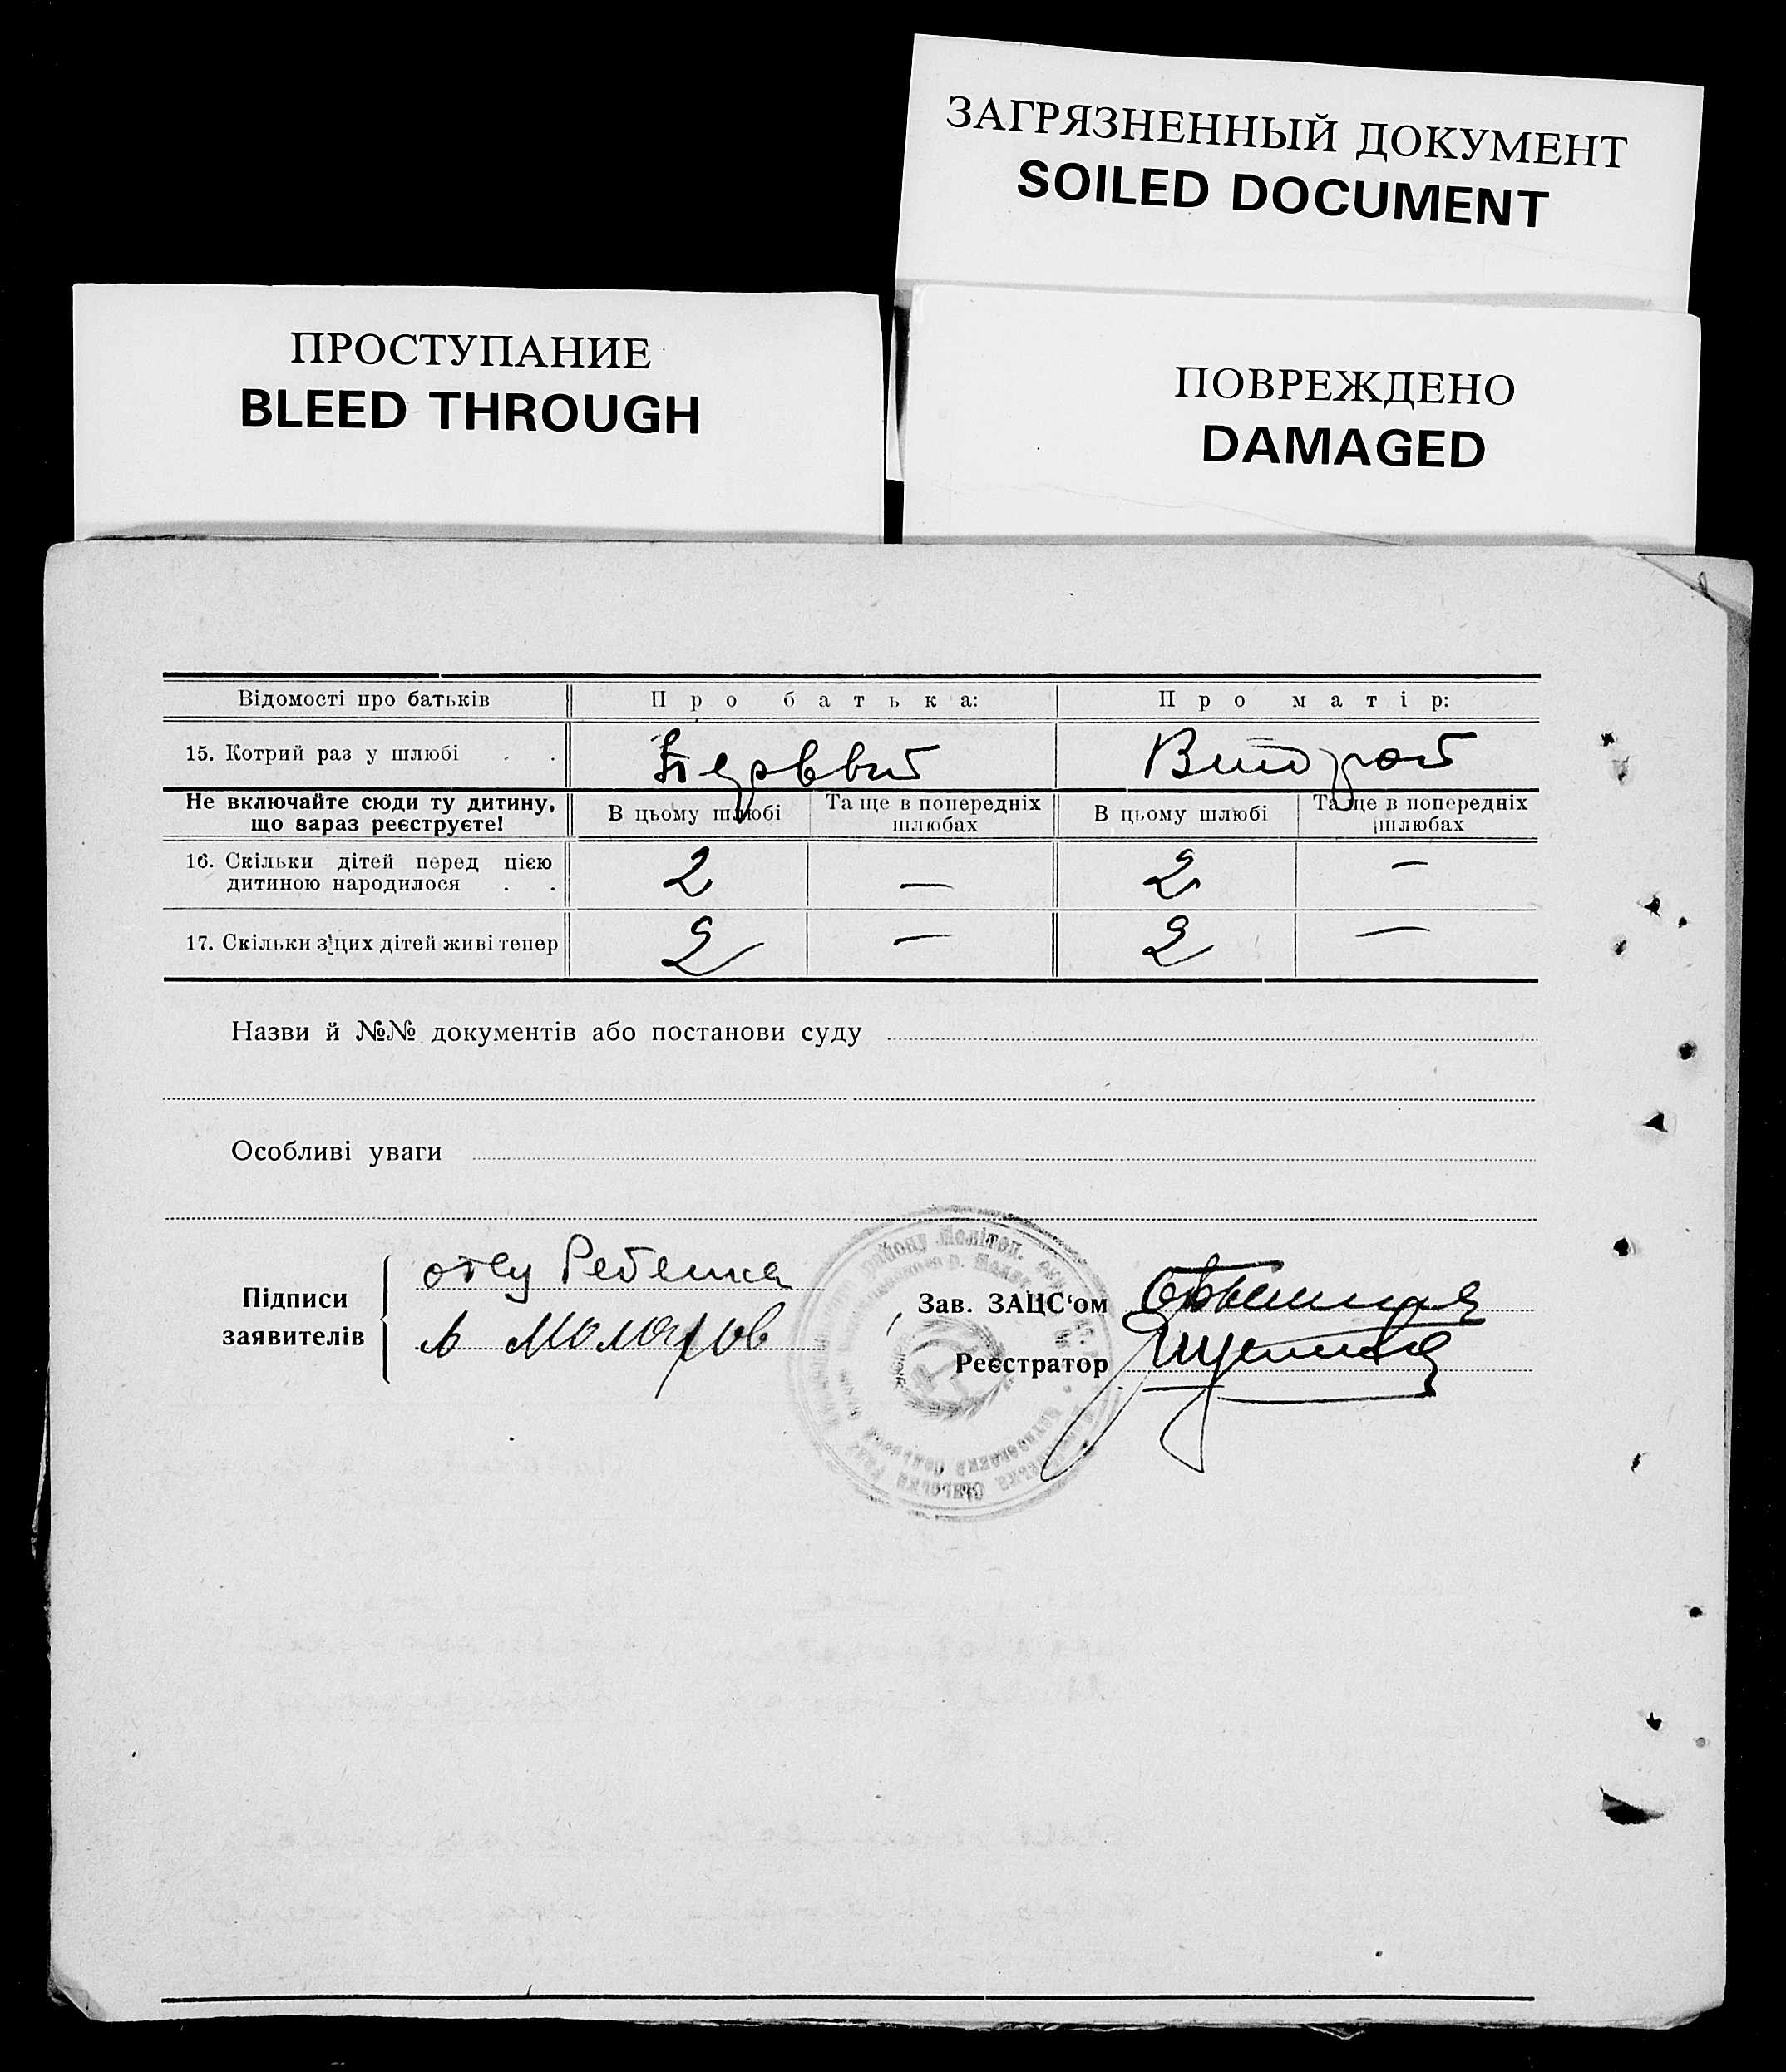 ЗАГРЯЗНЕННЫЙ ДОКУМЕНТ
SOILED DOCUMENT
ПРОСТУПАНИЕ
BLEED THROUGH
ПОВРЕЖДЕНО
DAMAGED
Відомості про батьків Про батька: Про матір:
15. Котрий раз у шлюбі . . Первый Второй
Не включайте сюди ту дитину, що вараз реєструєте! В цьому шлюбі Та ще в попередніх шлюбах В цьому шлюбі Та ще в попередніх шлюбах
16. Скільки дітей перед цією дитиною народилося . . 2 — 2 —
17. Скільки з цих дітей живі тепер 2 — 2 —
Назви й №№ документів або постанови суду
Особливі уваги
Підписи заявителів
отец Ребенка
Зав. ЗАЦС‘ом
Реєстратор
району Мелітоп.